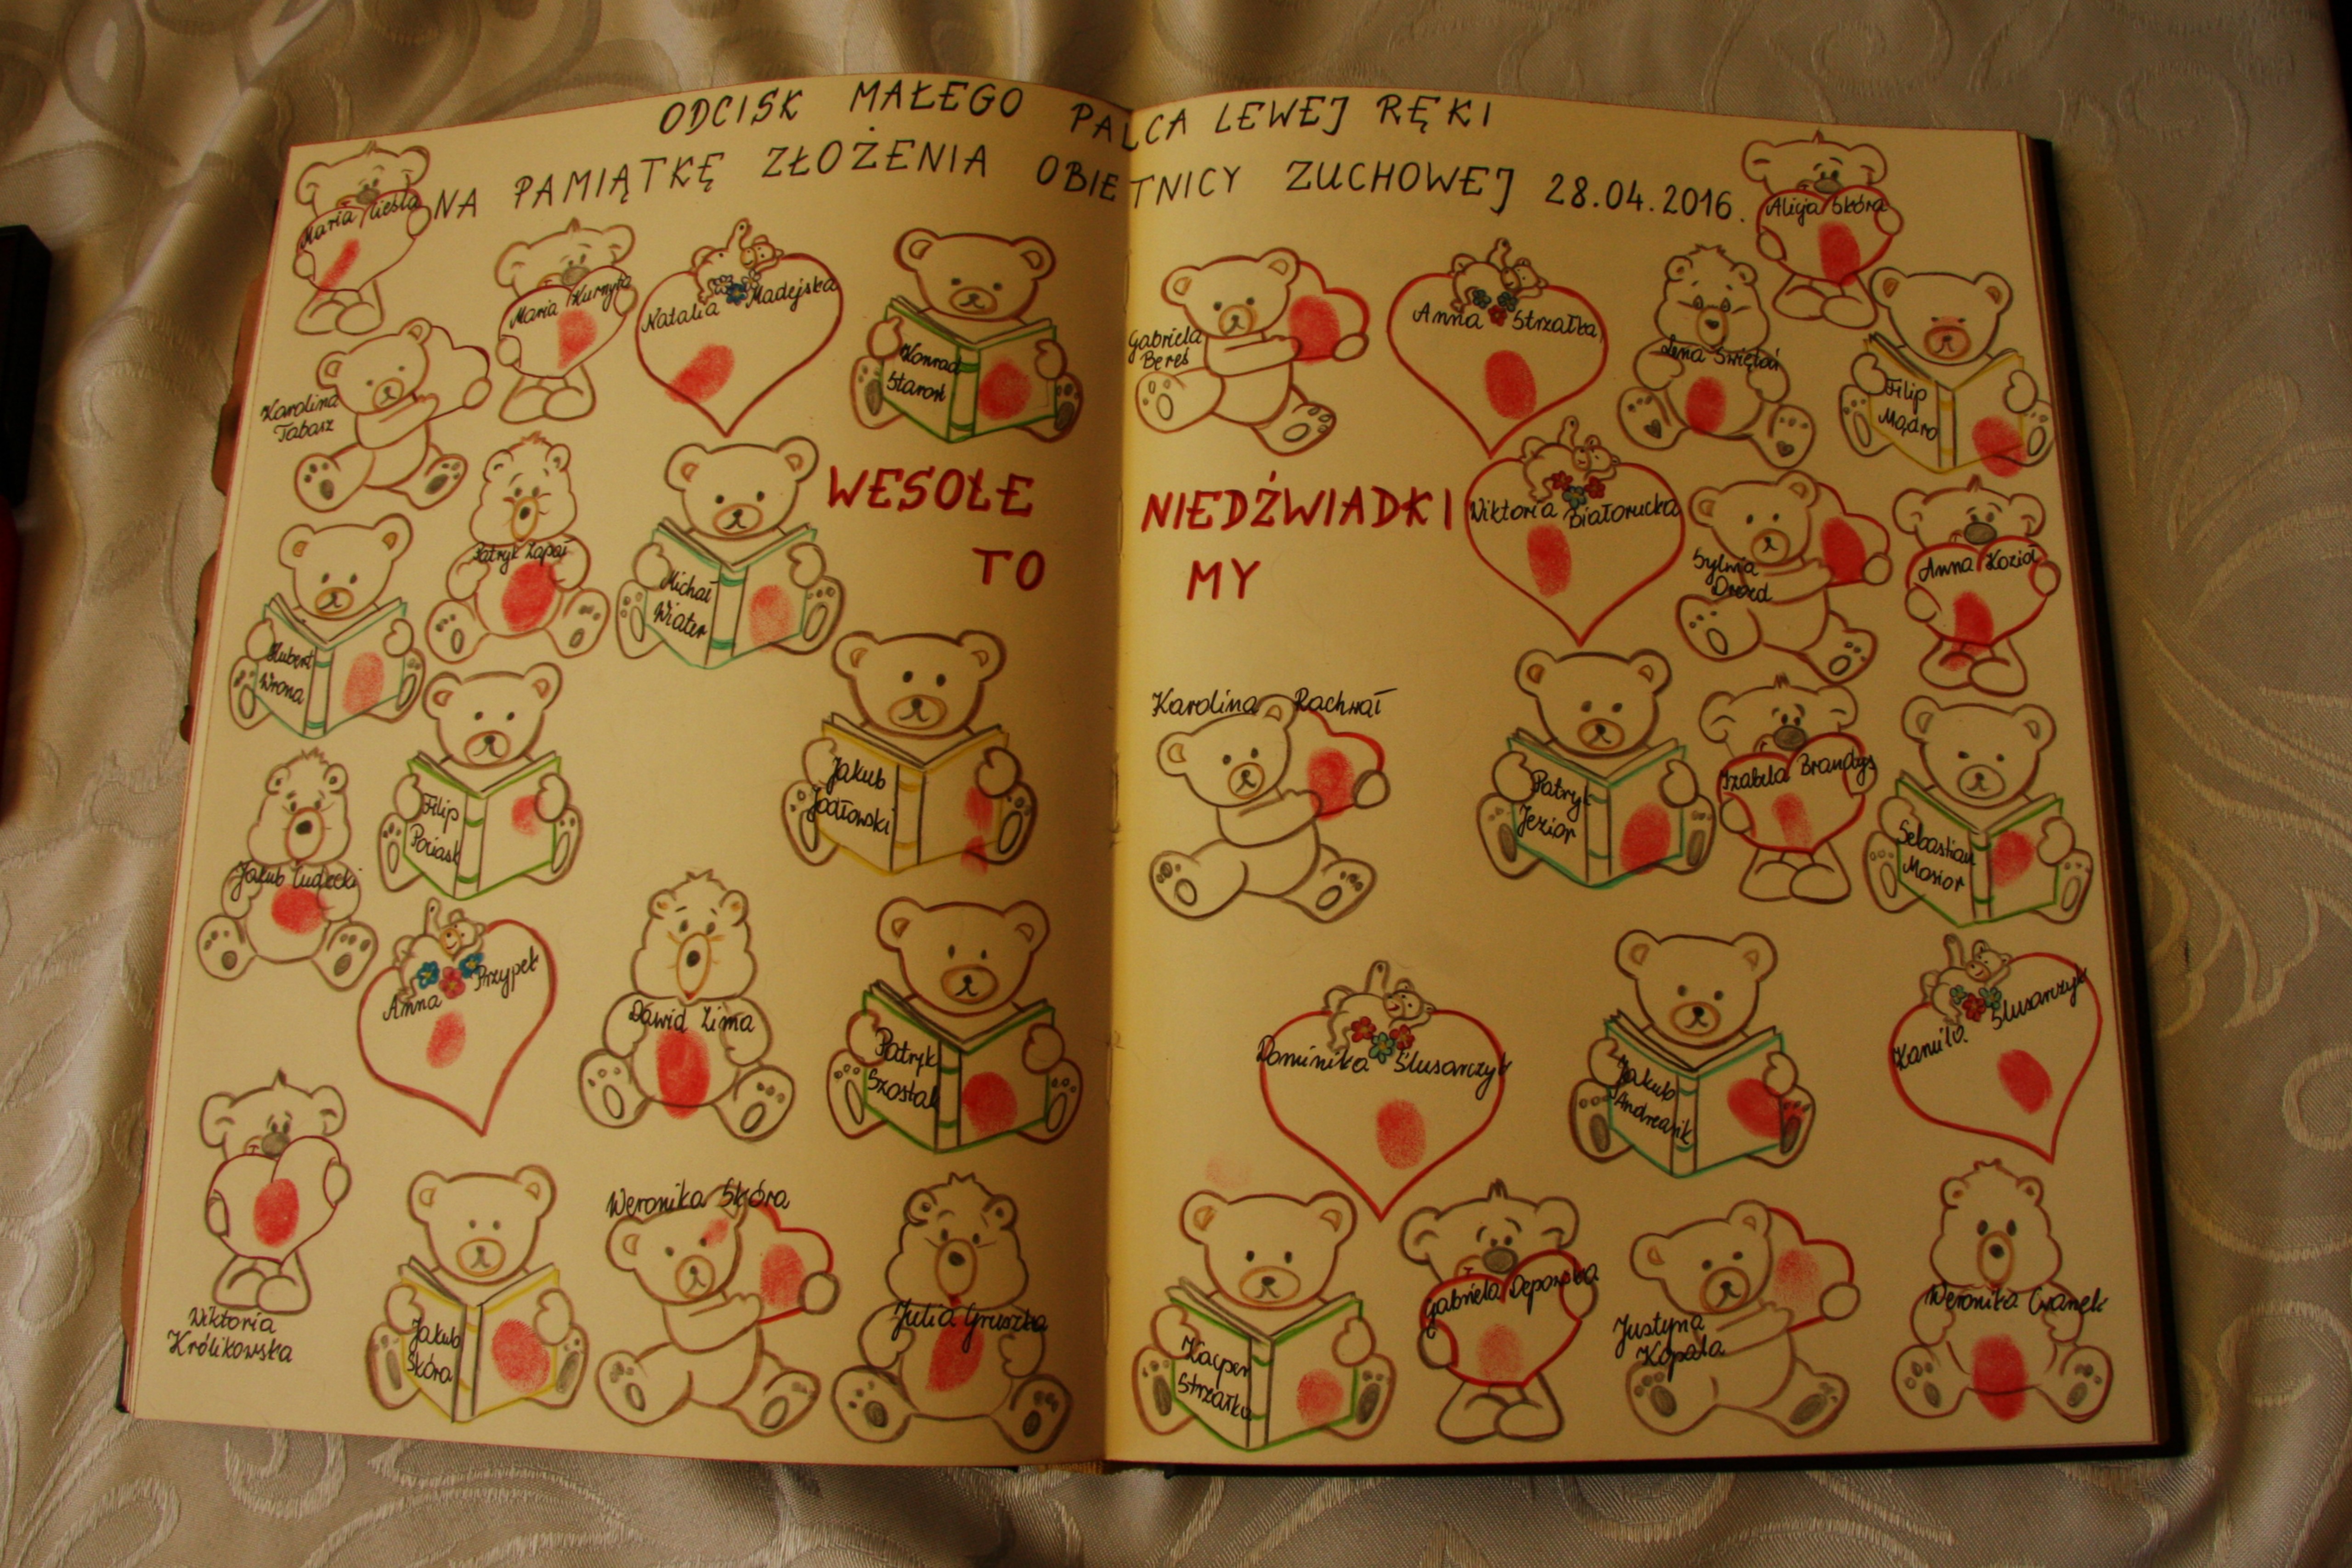 ODCISK MAŁEGO PALCA LEWEJ RĘKI
NA PAMIĄTKĘ ZŁOŻENIA OBIETNICY ZUCHOWEJ 28.04.2016.
WESOŁE NIEDŹWIADKI
TO MY
Maria
Maria Kurnyta
Natalia Madejska
Konrad
Staroń
Karolina
Tabasz
Patryk Łapaj
Michał
Wiater
Hubert
Wrona
Filip
Poziask
Jakub
Jodłowski
Jakub Cudecki
Anna Przypek
Dawid Zima
Patryk
Szostak
Wiktoria
Królikowska
Jakub
Skóra
Weronika Skóra
Julia Gruszka
Gabriela
Bereś
Anna Strzałka
Lena Święta
Alicja Skóra
Filip
Mądro
Wiktoria Białorucka
Sylwia
Drozd
Anna Kozioł
Karolina Rachwał
Patryk
Jezior
Izabela Brandys
Sebastian
Mosior
Dominika Ślusarczyk
Jakub
Kamila Ślusarczyk
Kacper
Strzałka
Gabriela Depowska
Justyna
Kopala
Weronika Cwanek